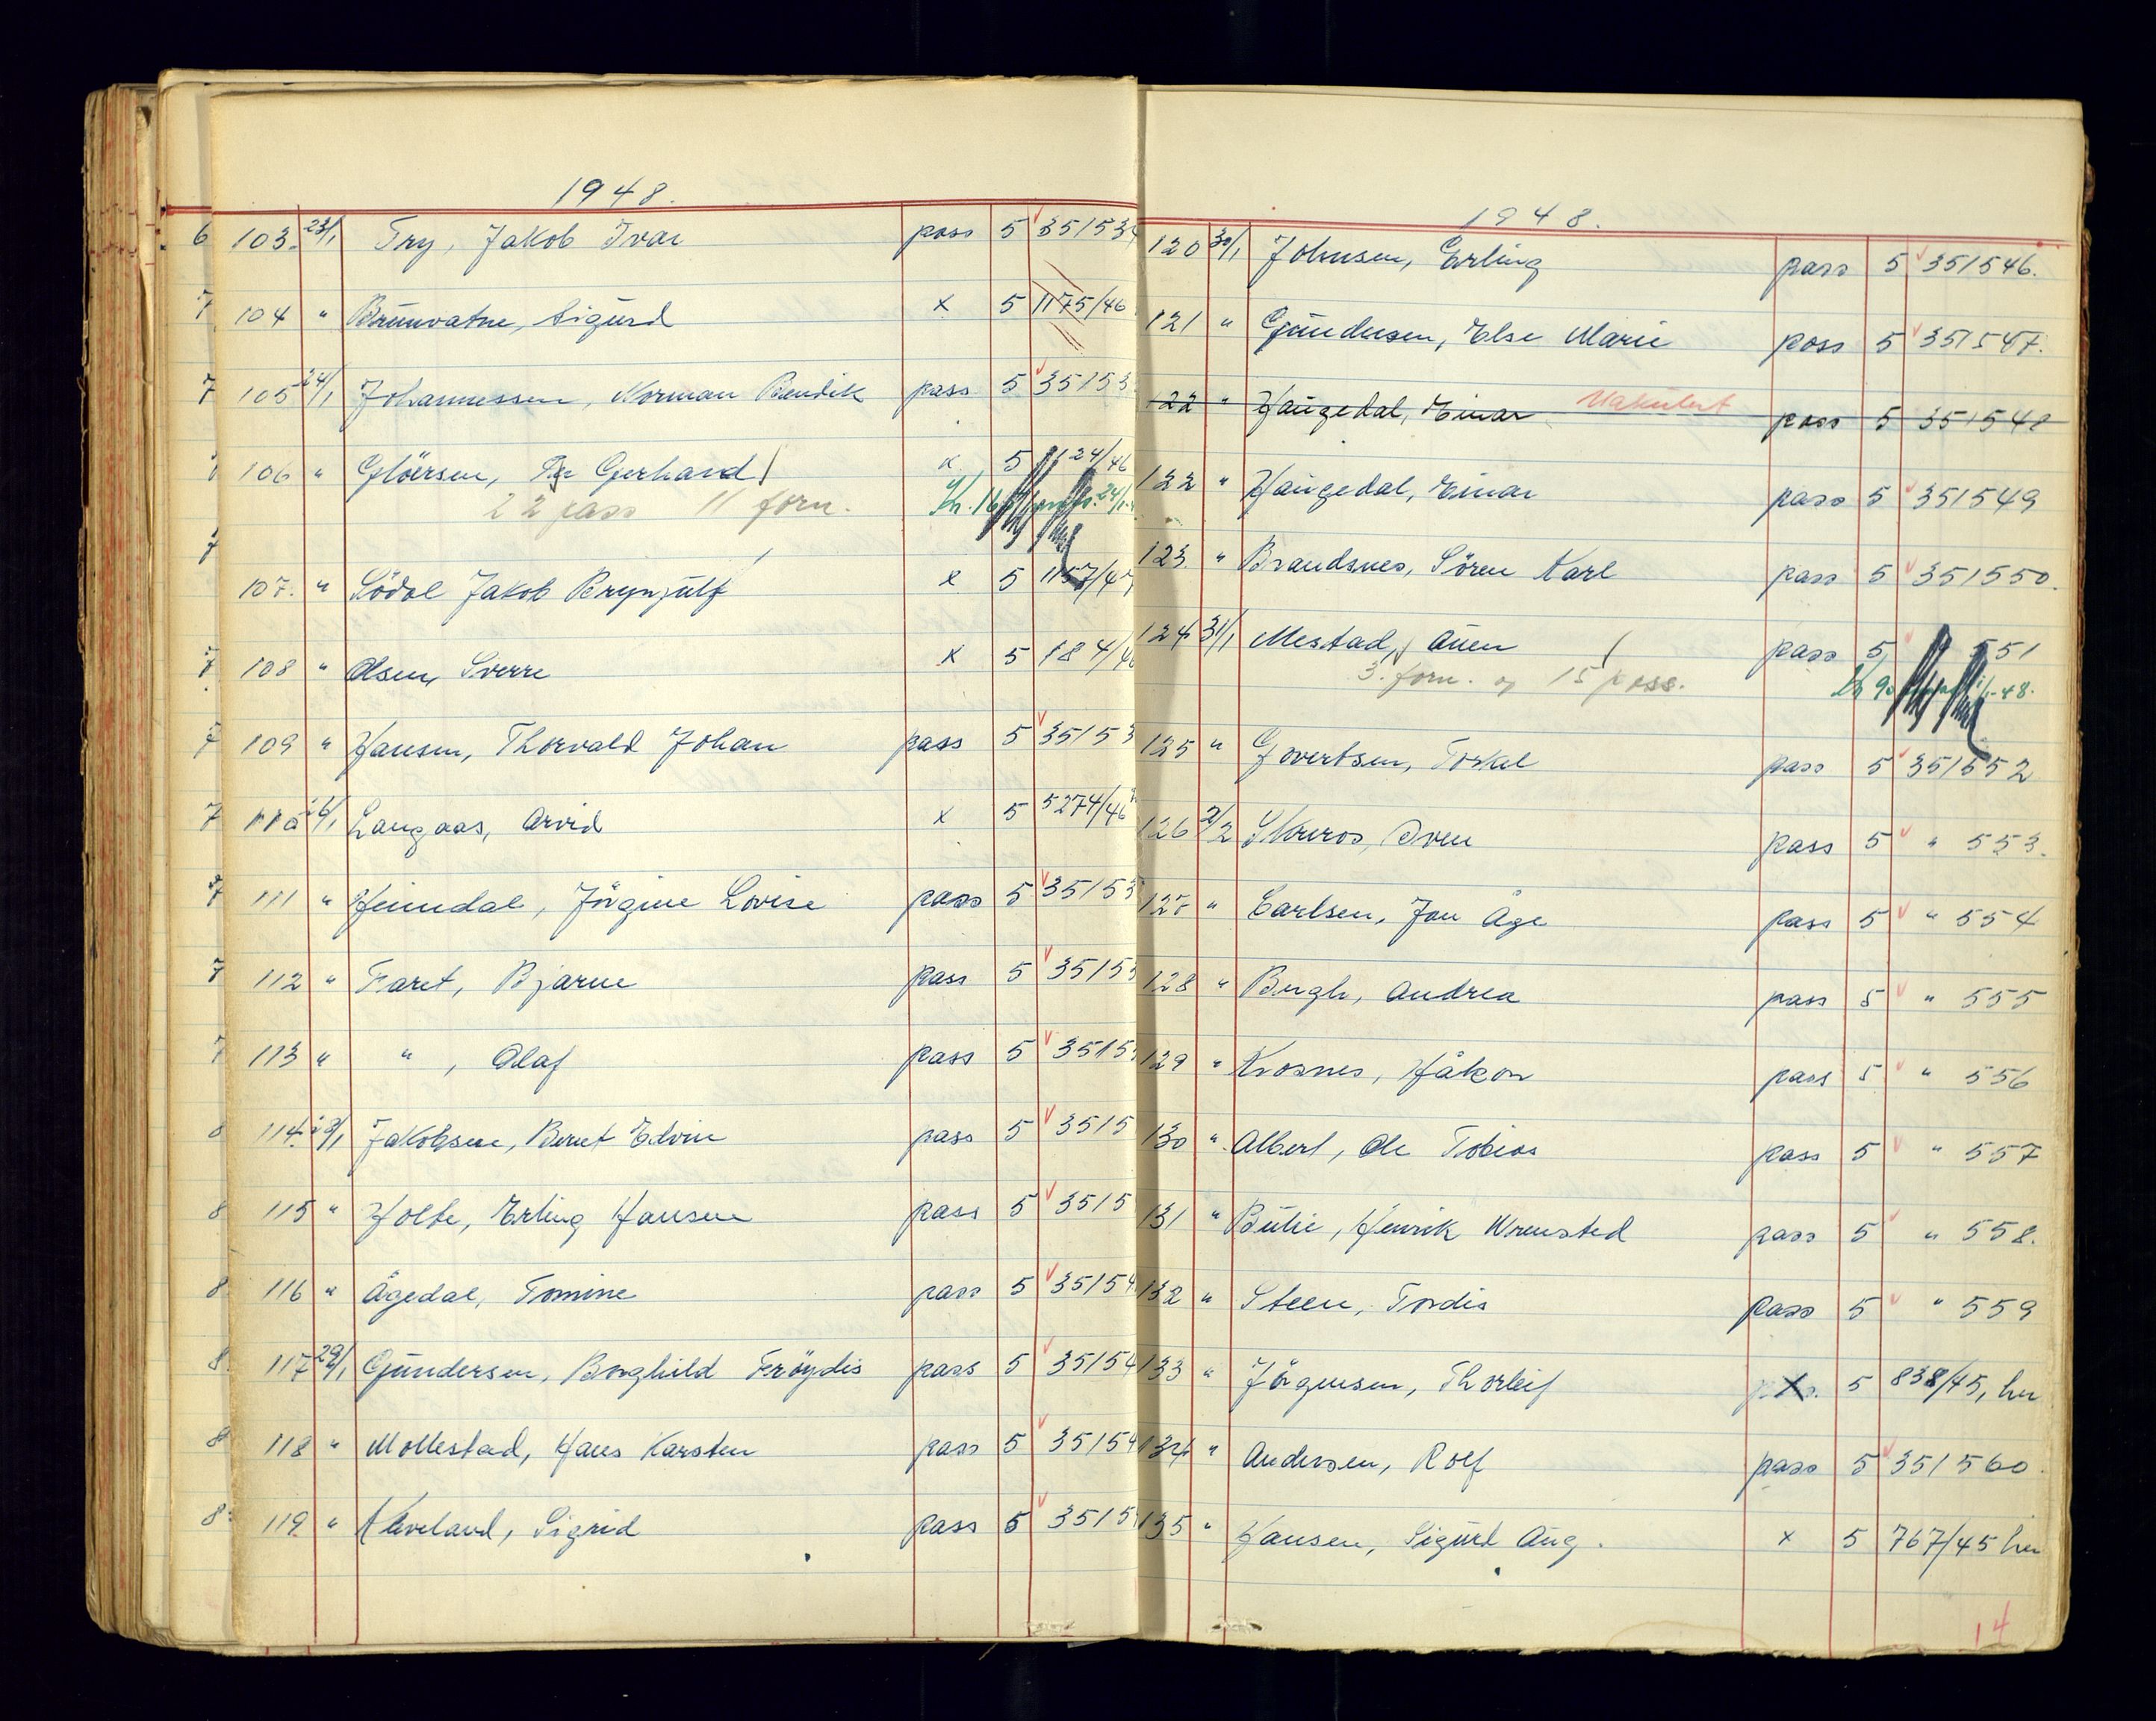 1948.
6 103. 23/1 Try, Jakob Ivar pass 5 v 35153
7 104 " Brunvatne, Sigurd x 5 1175/46
7 105 24/1 Johannessen, Norman Bendik pass 5 v 35153
106 " Glöersen, Gerhard x 5 1124/46
22 pass 11 forn. Kr. 24/1
7
107. " Södal Jakob Brynjulf x 5
7 108 " Olsen, Sverre x 5 184/4
7 109 " Hansen, Thorvald Johan pass 5 v 35153
7 110 26/1 Langaas, Arvid x 5 5274/46
7 111 " Heimdal, Jörgine Lovise pass 5 v 35153
7 112 " Faret, Bjarne pass 5 v 35153
7 113 " " , Olaf pass 5 v 3515
8 114. /1 Jakobsen, Bernt Edvin pass 5 v 3515
8 115 " Holte, Erling Hansen pass 5 v 3515
8 116 " Ågedal, Tomine pass 5 v 35154
8 117 29/1 Gundersen, Borghild Fröydis pass 5 v 35154
8 118 " Mollestad, Hans Karsten pass 5 v 35154
8 119 " Kleveland, Sigrid pass 5 v 3515
1948.
120 30/1 Johnsen, Erling pass 5 v 351546.
121 " Gundersen, Else Marie pass 5 v 351547.
122 " Haugedal, Einar Makulert pass 5 351548
122 " Haugedal, Einar pass 5 v 351549
123 " Brandsnes, Sören Karl pass 5 v 351550.
124 31/1 Mestad, Auen pass 5 551
3. forn. og 15 pass. Kr 90 48.
125 " Govertsen, Torkel pass 5 v 351552
126 2/2 Iven pass 5 v " 553.
127 " Carlsen, Jan Åge pass 5 v " 554
128 " Bergh, Andrea pass 5 v " 555
129 " Krosnes, Håkon pass 5 v " 556
130 " Albert, Ole Tobias pass 5 v " 557
131 " Butie, Henrik Wrensted pass 5 v " 558.
132 " Steen, Tordis pass 5 v " 559
133 " Jörgensen, Thorleif x 5 838/45, her
134 " Andersen, Rolf pass 5 v 351560.
135 " Hansen, Sigurd Aug. x 5 767/45 her
14